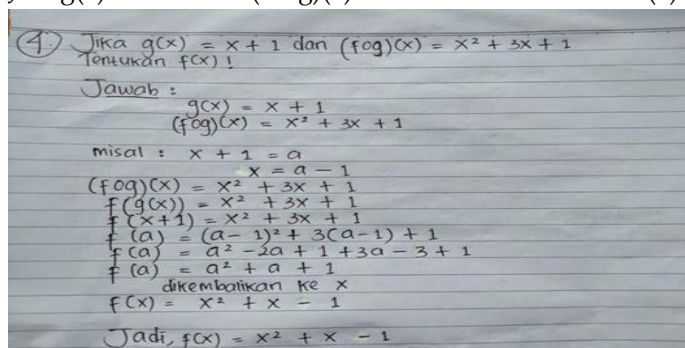 4. Jika g(x) = x + 1 dan (fog)(x) = x² + 3x + 1
Tentukan f(x) !
Jawab :
g(x) = x + 1
(fog)(x) = x² + 3x + 1
misal : x + 1 = a
x = a - 1
(fog)(x) = x² + 3x + 1
f(g(x)) = x² + 3x + 1
f(x+1) = x² + 3x + 1
f(a) = (a - 1)² + 3(a - 1) + 1
f(a) = a² - 2a + 1 + 3a - 3 + 1
f(a) = a² + a + 1
dikembalikan ke x
f(x) = x² + x - 1
Jadi, f(x) = x² + x - 1